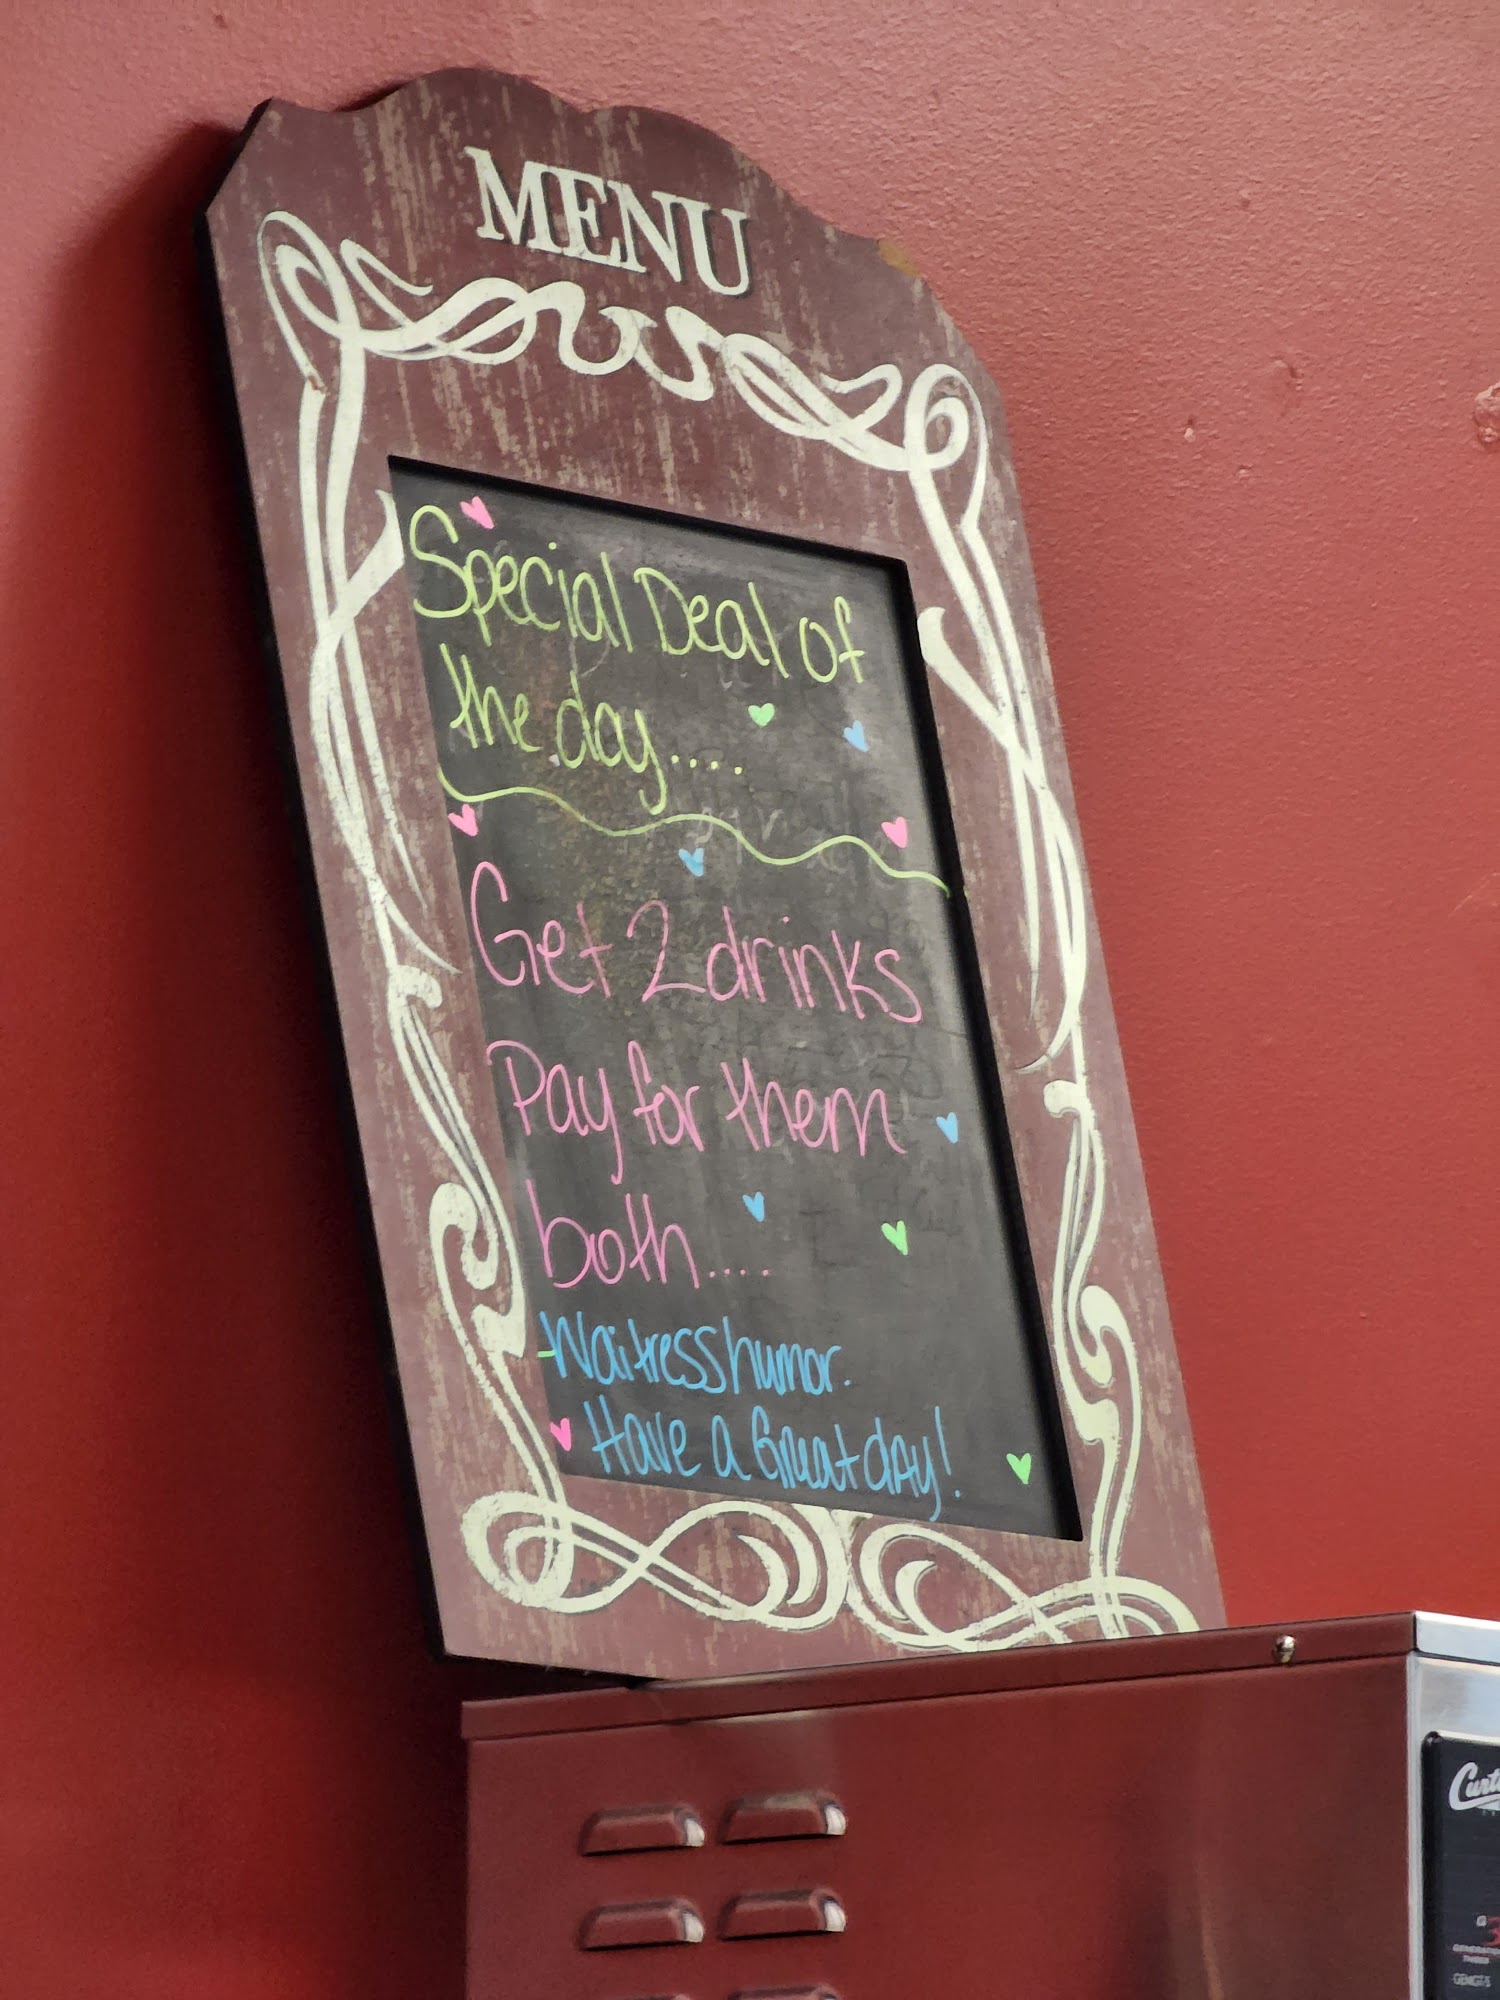 MENU
Special Deal of
the day....
Get 2 drinks
Pay for them
both....
-Waitress humor.
Have a Great day!